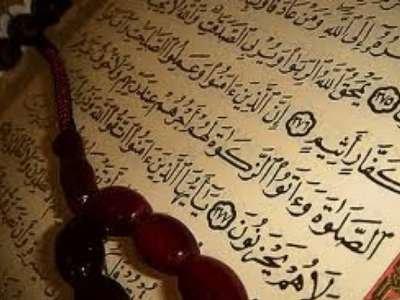 إِلَى ٱللَّهِ وَمَنْ عَادَ
٢٧٥ يَمْحَقُ ٱللَّهُ ٱلرِّبَوٰا۟ وَيُرْبِى ٱلصَّدَقَٰتِ وَٱللَّهُ لَا يُحِبُّ
كَفَّارٍ أَثِيمٍ ٢٧٦ إِنَّ ٱلَّذِينَ ءَامَنُوا۟ وَعَمِلُوا۟ ٱلصَّٰلِحَٰتِ
ٱلصَّلَوٰةَ وَءَاتَوُا۟ ٱلزَّكَوٰةَ لَهُمْ أَجْرُهُمْ عِندَ رَبِّهِمْ وَلَا خَوْفٌ
لَا هُمْ يَحْزَنُونَ ٢٧٧ يَٰٓأَيُّهَا ٱلَّذِينَ ءَامَنُوا۟ ٱتَّقُوا۟ ٱللَّهَ